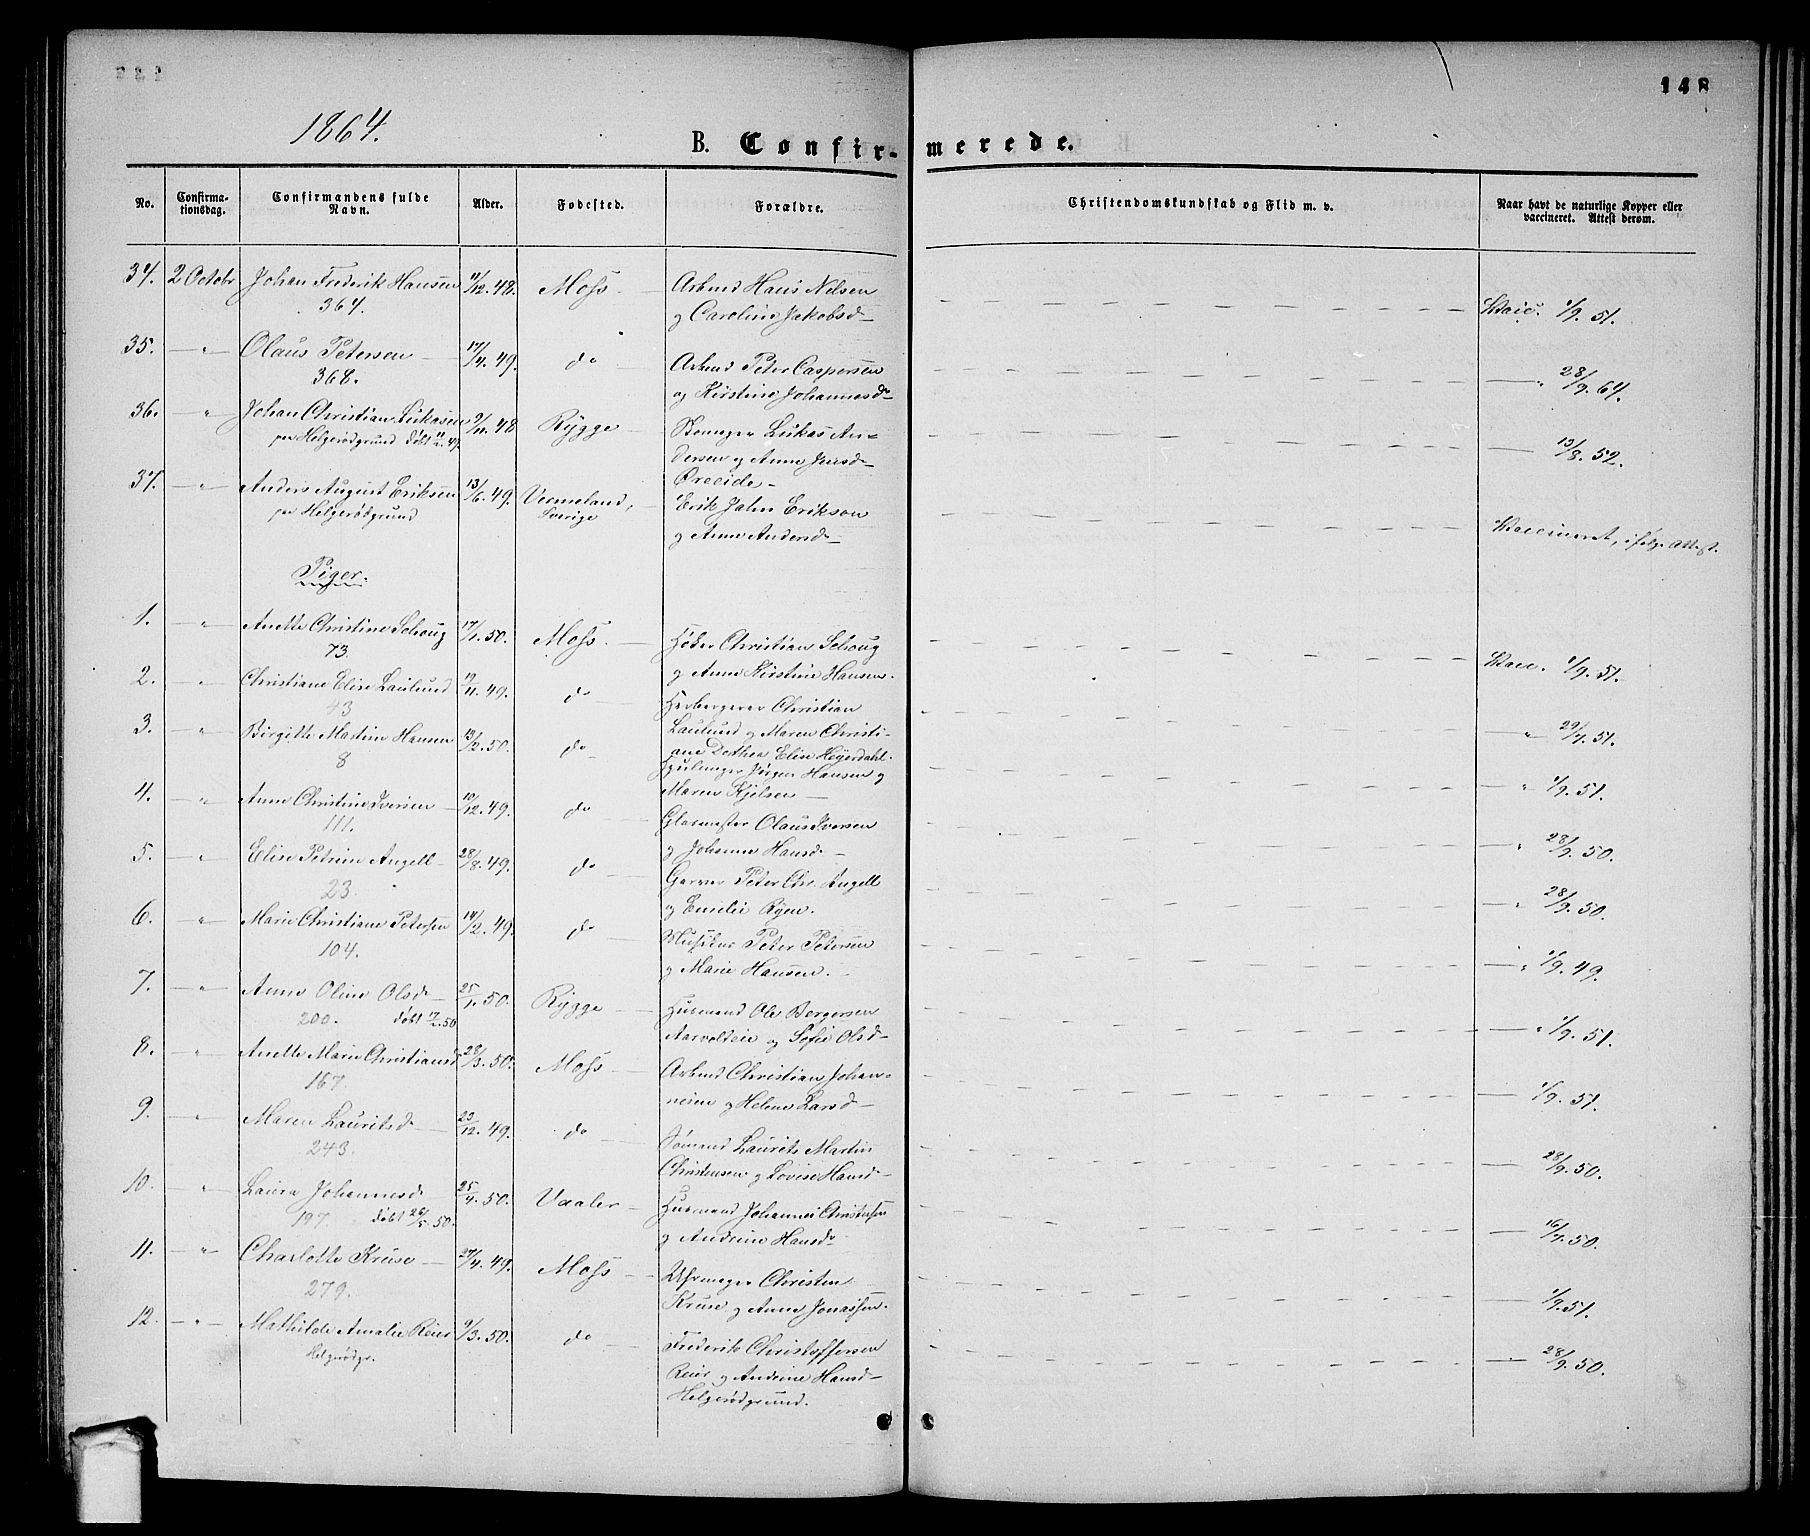 148
1864.
B. Confirmerede.
No. Confirmationsdag. Confirmandens fulde Navn. Alder. Fødested. Forældre. Christendomskundskab og Flid m. v. Naar havt de naturlige Kopper eller vaccineret. Attest derom.
34. 2 Octobr Johan Fredrik Hansen 11/12.48. Moss. Arbmd Hans Nilsen
364. og Caroline Jakobsd Vacc. 1/9.51.
35. — " — Olaus Petersen 17/4.49. do Arbmd Peter Caspersen
368. og Kirstine Johannesd — " 28/9.64.
36. — " Johan Christian Lukasen 9/11.48 Rygge Lukas An-
paa Helgerødgrund døbt 11/2.49. dersen og Anne Jensd — 13/8.52.
Øreeide
37. — " — Anders August Eriksen 13/6.49. Vermeland, Erik Jahn Erikson
paa Helgerødgrund Sverige og Anna Andersd Vaccineret, ifølge Attest.
Piger.
1. — " — Anette Christine Schoug 17/1.50. Moss. Høker Christian Schoug
73. og Anne Kirstine Hansen. Vacc. 1/9.51.
2. — " Christiane Elise Laulund 19/11.49. do Herbergerer Christian
43 Laulund og Maren Christi- — " 29/7.51.
ane Dorthea Elise Heyerdahl.
3. — " Birgitte Martine Hansen 13/2.50. do Jørgen Hansen og
8 Maren Kjelsen — " 1/9.51.
4. — " Anne Christine Iversen 10/12.49. do Glarmester Olaus Iversen
111. og Johanne Hansd — " 28/9.50.
5. — " Elise Petrine Angell 28/8.49. do Garver Peter Chr. Angell
23. og Emilie Ryen. — " 28/9.50.
6. — " — Marie Christiane Petersen 14/2.49. do Peter Petersen
104. og Marie Hansen. — " 1/9.49.
7. — " — Anne Oline Olsd 25/1.50. Rygge Husmand Ole Bergersen
200. døbt 17/2.50 Aarvoldeie og Sofie Olsd — " 1/9.51.
8. — " Anette Marie Christiansd 28/3.50. Moss Arbmd Christian Johan-
167. nesen og Helene Larsd — 1/9.51.
9. — " Maren Lauritsd 23/12.49. do Sømand Laurits Martin
243. Christensen og Lovise Hansd — 28/9.50.
10. — " Laura Johannesd 25/4.50. Vaaler Husmand Johannes Christensen
197. døbt 26/5.50. og Andrine Hansd — 16/7.50.
11. — " Charlotte Kruse 27/4.49. Moss Uhrmager Christen
279. Kruse og Anne Jonassen. — 1/9.51.
12. — " — Mathilde Amalie Reier 9/3.50. do Frederik Christoffersen
Helgerødgr. Reier og Andrine Hansd — " 28/9.50.
Helgerødgrund.